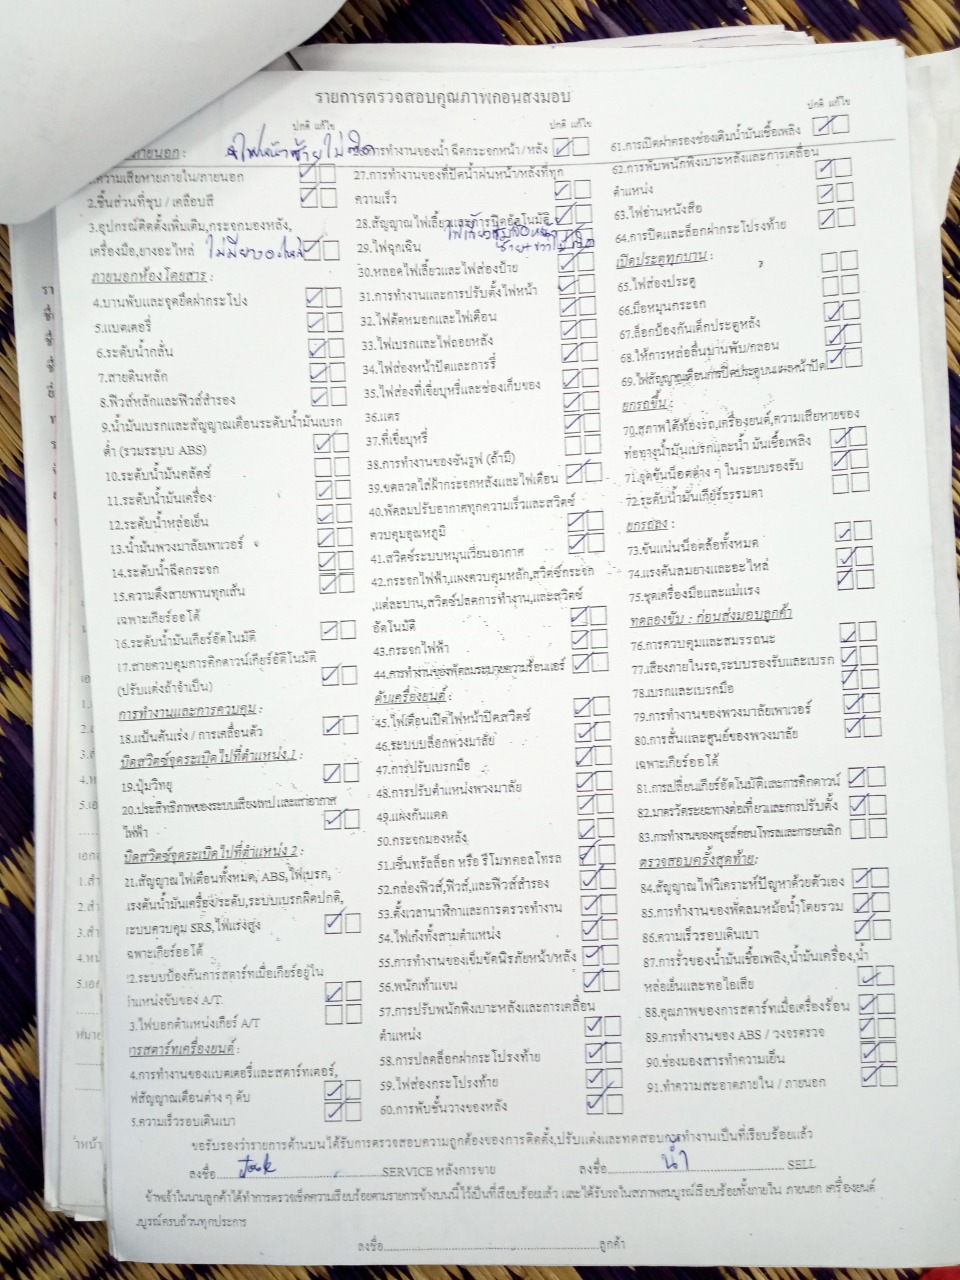 รายการตรวจสอบคุณภาพก่อนส่งมอบ
ปกติ แก้ไข
ภายนอก :
ไฟหน้าซ้ายไม่ติด
1.ความเสียหายภายใน/ภายนอก
2.ชิ้นส่วนที่ชุบ / เคลือบสี
3.อุปกรณ์ติดตั้งเพิ่มเติม,กระจกมองหลัง,
เครื่องมือ,ยางอะไหล่ ไม่มียางอะไหล่
ภายนอกห้องโดยสาร :
4.บานพับและจุดยึดฝากระโปง
5.แบตเตอรี่
6.ระดับน้ำกลั่น
7.สายดินหลัก
8.ฟิวส์หลักและฟิวส์สำรอง
9.น้ำมันเบรกและสัญญาณเตือนระดับน้ำมันเบรก
ต่ำ (รวมระบบ ABS)
10.ระดับน้ำมันคลัตช์
11.ระดับน้ำมันเครื่อง
12.ระดับน้ำหล่อเย็น
13.น้ำมันพวงมาลัยเพาเวอร์
14.ระดับน้ำฉีดกระจก
15.ความตึงสายพานทุกเส้น
เฉพาะเกียร์ออโต้
16.ระดับน้ำมันเกียร์อัตโนมัติ
17.สายควบคุมการคิกดาวน์เกียร์อัติโนมัติ
(ปรับแต่งถ้าจำเป็น)
การทำงานและการควบคุม :
18.แป้นคันเร่ง / การเคลื่อนตัว
บิดสวิตช์จุดระเบิดไปที่ตำแหน่ง 1 :
19.ปุ่มวิทยุ
20.ประสิทธิภาพของระบบเสียงเทป และเสาอากาศ
ไฟฟ้า
บิดสวิตช์จุดระเบิดไปที่ตำแหน่ง 2 :
21.สัญญาณไฟเตือนทั้งหมด, ABS,ไฟเบรก,
แรงดันน้ำมันเครื่อง/ระดับ,ระบบเบรกผิดปกติ,
ระบบควบคุม SRS,ไฟแรงสูง
เฉพาะเกียร์ออโต้
2.ระบบป้องกันการสตาร์ทเมื่อเกียร์อยู่ใน
ตำแหน่งขับของ A/T
3.ไฟบอกตำแหน่งเกียร์ A/T
การสตาร์ทเครื่องยนต์ :
4.การทำงานของแบตเตอรี่และสตาร์ทเตอร์,
ไฟสัญญาณเตือนต่าง ๆ ดับ
5.ความเร็วรอบเดินเบา
ปกติ แก้ไข
การทำงานของน้ำ ฉีดกระจกหน้า / หลัง
27.การทำงานของที่ปัดน้ำฝนหน้า/หลังที่ทุก
ความเร็ว
28.สัญญาณไฟเลี้ยวและการปิดอัตโนมัติ
29.ไฟฉุกเฉิน
30.หลอดไฟเลี้ยวและไฟส่องป้าย
31.การทำงานและการปรับตั้งไฟหน้า
32.ไฟตัดหมอกและไฟเตือน
33.ไฟเบรกและไฟถอยหลัง
34.ไฟส่องหน้าปัดและการรี่
35.ไฟส่องที่เขี่ยบุหรี่และช่องเก็บของ
36.แตร
37.ที่เขี่ยบุหรี่
38.การทำงานของซันรูฟ (ถ้ามี)
39.ขดลวดไล่ฝ้ากระจกหลังและไฟเตือน
40.พัดลมปรับอากาศทุกความเร็วและสวิตช์
ควบคุมอุณหภูมิ
41.สวิตช์ระบบหมุนเวียนอากาศ
42.กระจกไฟฟ้า,แผงควบคุมหลัก,สวิตช์กระจก
,แต่ละบาน,สวิตช์ปลดการทำงาน,และสวิตช์
อัตโนมัติ
43.กระจกไฟฟ้า
44.การทำงานของพัดลมระบายความร้อนแอร์
ดับเครื่องยนต์ :
45.ไฟเตือนเปิดไฟหน้าปิดสวิตช์
46.ระบบบล็อกพวงมาลัย
47.การปรับเบรกมือ
48.การปรับตำแหน่งพวงมาลัย
49.แผ่งกันแดด
50.กระจกมองหลัง
51.เซ็นทรัลล็อก หรือ รีโมทคอลโทรล
52.กล่องฟิวส์,ฟิวส์,และฟิวส์สำรอง
53.ตั้งเวลานาฬิกาและการตรวจทำงาน
54.ไฟเก๋งทั้งสามตำแหน่ง
55.การทำงานของเข็มขัดนิรภัยหน้า/หลัง
56.พนักเท้าแขน
57.การปรับพนักพิงเบาะหลังและการเคลื่อน
ตำแหน่ง
58.การปลดล็อกฝากระโปรงท้าย
59.ไฟส่องกระโปรงท้าย
60.การพับชั้นวางของหลัง
ปกติ แก้ไข
61.การเปิดฝาครองช่องเติมน้ำมันเชื้อเพลิง
62.การพับพนักพิงเบาะหลังและการเคลื่อน
ตำแหน่ง
63.ไฟอ่านหนังสือ
64.การปิดและล็อกฝากระโปรงท้าย
เปิดประตูทุกบาน :
65.ไฟส่องประตู
66.มือหมุนกระจก
67.ล็อกป้องกันเด็กประตูหลัง
68.ให้การหล่อลื่นบานพับ/กลอน
69.ไฟสัญญาณเตือนการปิดประตูบนแผงหน้าปัด
ยกรถขึ้น :
70.สภาพใต้ท้องรถ,เครื่องยนต์,ความเสียหายของ
ท่อทางน้ำมันเบรกและน้ำ มันเชื้อเพลิง
71.จุดขันน็อตต่าง ๆ ในระบบรองรับ
72.ระดับน้ำมันเกียร์ธรรมดา
ยกรถลง :
73.ขันแน่นน็อตล้อทั้งหมด
74.แรงดันลมยางและอะไหล่
75.ชุดเครื่องมือและแม่แรง
ทดลองขับ : ก่อนส่งมอบลูกค้า
76.การควบคุมและสมรรถนะ
77.เสียงภายในรถ,ระบบรองรับและเบรก
78.เบรกและเบรกมือ
79.การทำงานของพวงมาลัยเพาเวอร์
80.การสั่นและศูนย์ของพวงมาลัย
เฉพาะเกียร์ออโต้
81.การเปลี่ยนเกียร์อัตโนมัติและการคิกดาวน์
82.มาตรวัดระยะทางต่อเที่ยวและการปรับตั้ง
83.การทำงานของครุยส์คอนโทรลและการยกเลิก
ตรวจสอบครั้งสุดท้าย:
84.สัญญาณ ไฟวิเคราะห์ปัญหาด้วยตัวเอง
85.การทำงานของพัดลมหม้อน้ำโดยรวม
86.ความเร็วรอบเดินเบา
87.การรั่วของน้ำมันเชื้อเพลิง,น้ำมันเครื่อง,น้ำ
หล่อเย็นและท่อไอเสีย
88.คุณภาพของการสตาร์ทเมื่อเครื่องร้อน
89.การทำงานของ ABS / วงจรตรวจ
90.ช่องมองสารทำความเย็น
91.ทำความสะอาดภายใน / ภายนอก
ขอรับรองว่ารายการด้านบนได้รับการตรวจสอบความถูกต้องของการติดตั้ง,ปรับแต่งและทดสอบการทำงานเป็นที่เรียบร้อยแล้ว
ลงชื่อ Jack SERVICE หลังการขาย ลงชื่อ น้ำ SELL
ข้าพเจ้าในนามลูกค้าได้ทำการตรวจเช็คความเรียบร้อยตามรายการข้างบนนี้ไว้เป็นที่เรียบร้อยแล้ว และได้รับรถในสภาพสมบูรณ์เรียบร้อยทั้งภายใน ภายนอก เครื่องยนต์
บูรณ์ครบถ้วนทุกประการ
ลงชื่อ ลูกค้า